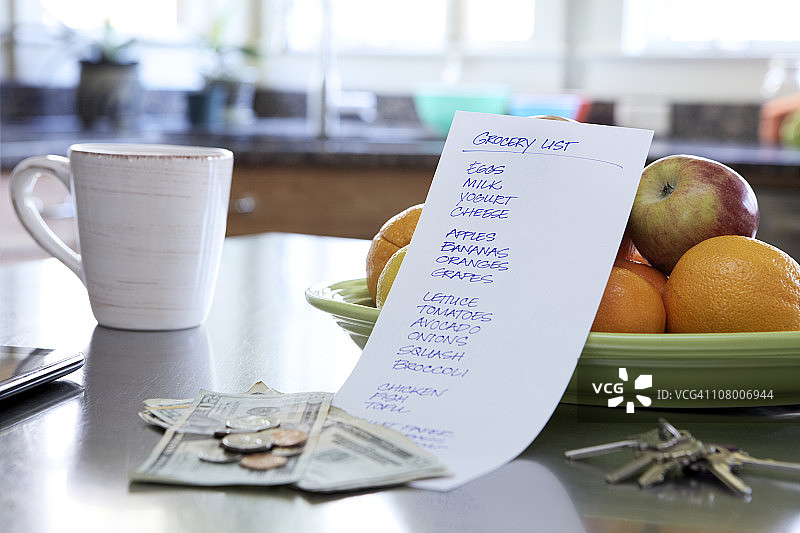 GROCERY LIST
EGGS
MILK
YOGURT
CHEESE
APPLES
BANANAS
ORANGES
GRAPES
LETTUCE
TOMATOES
AVOCADO
ONIONS
SQUASH
BROCCOLI
CHICKEN
FISH
TOFU
VCG
VCG41108006944